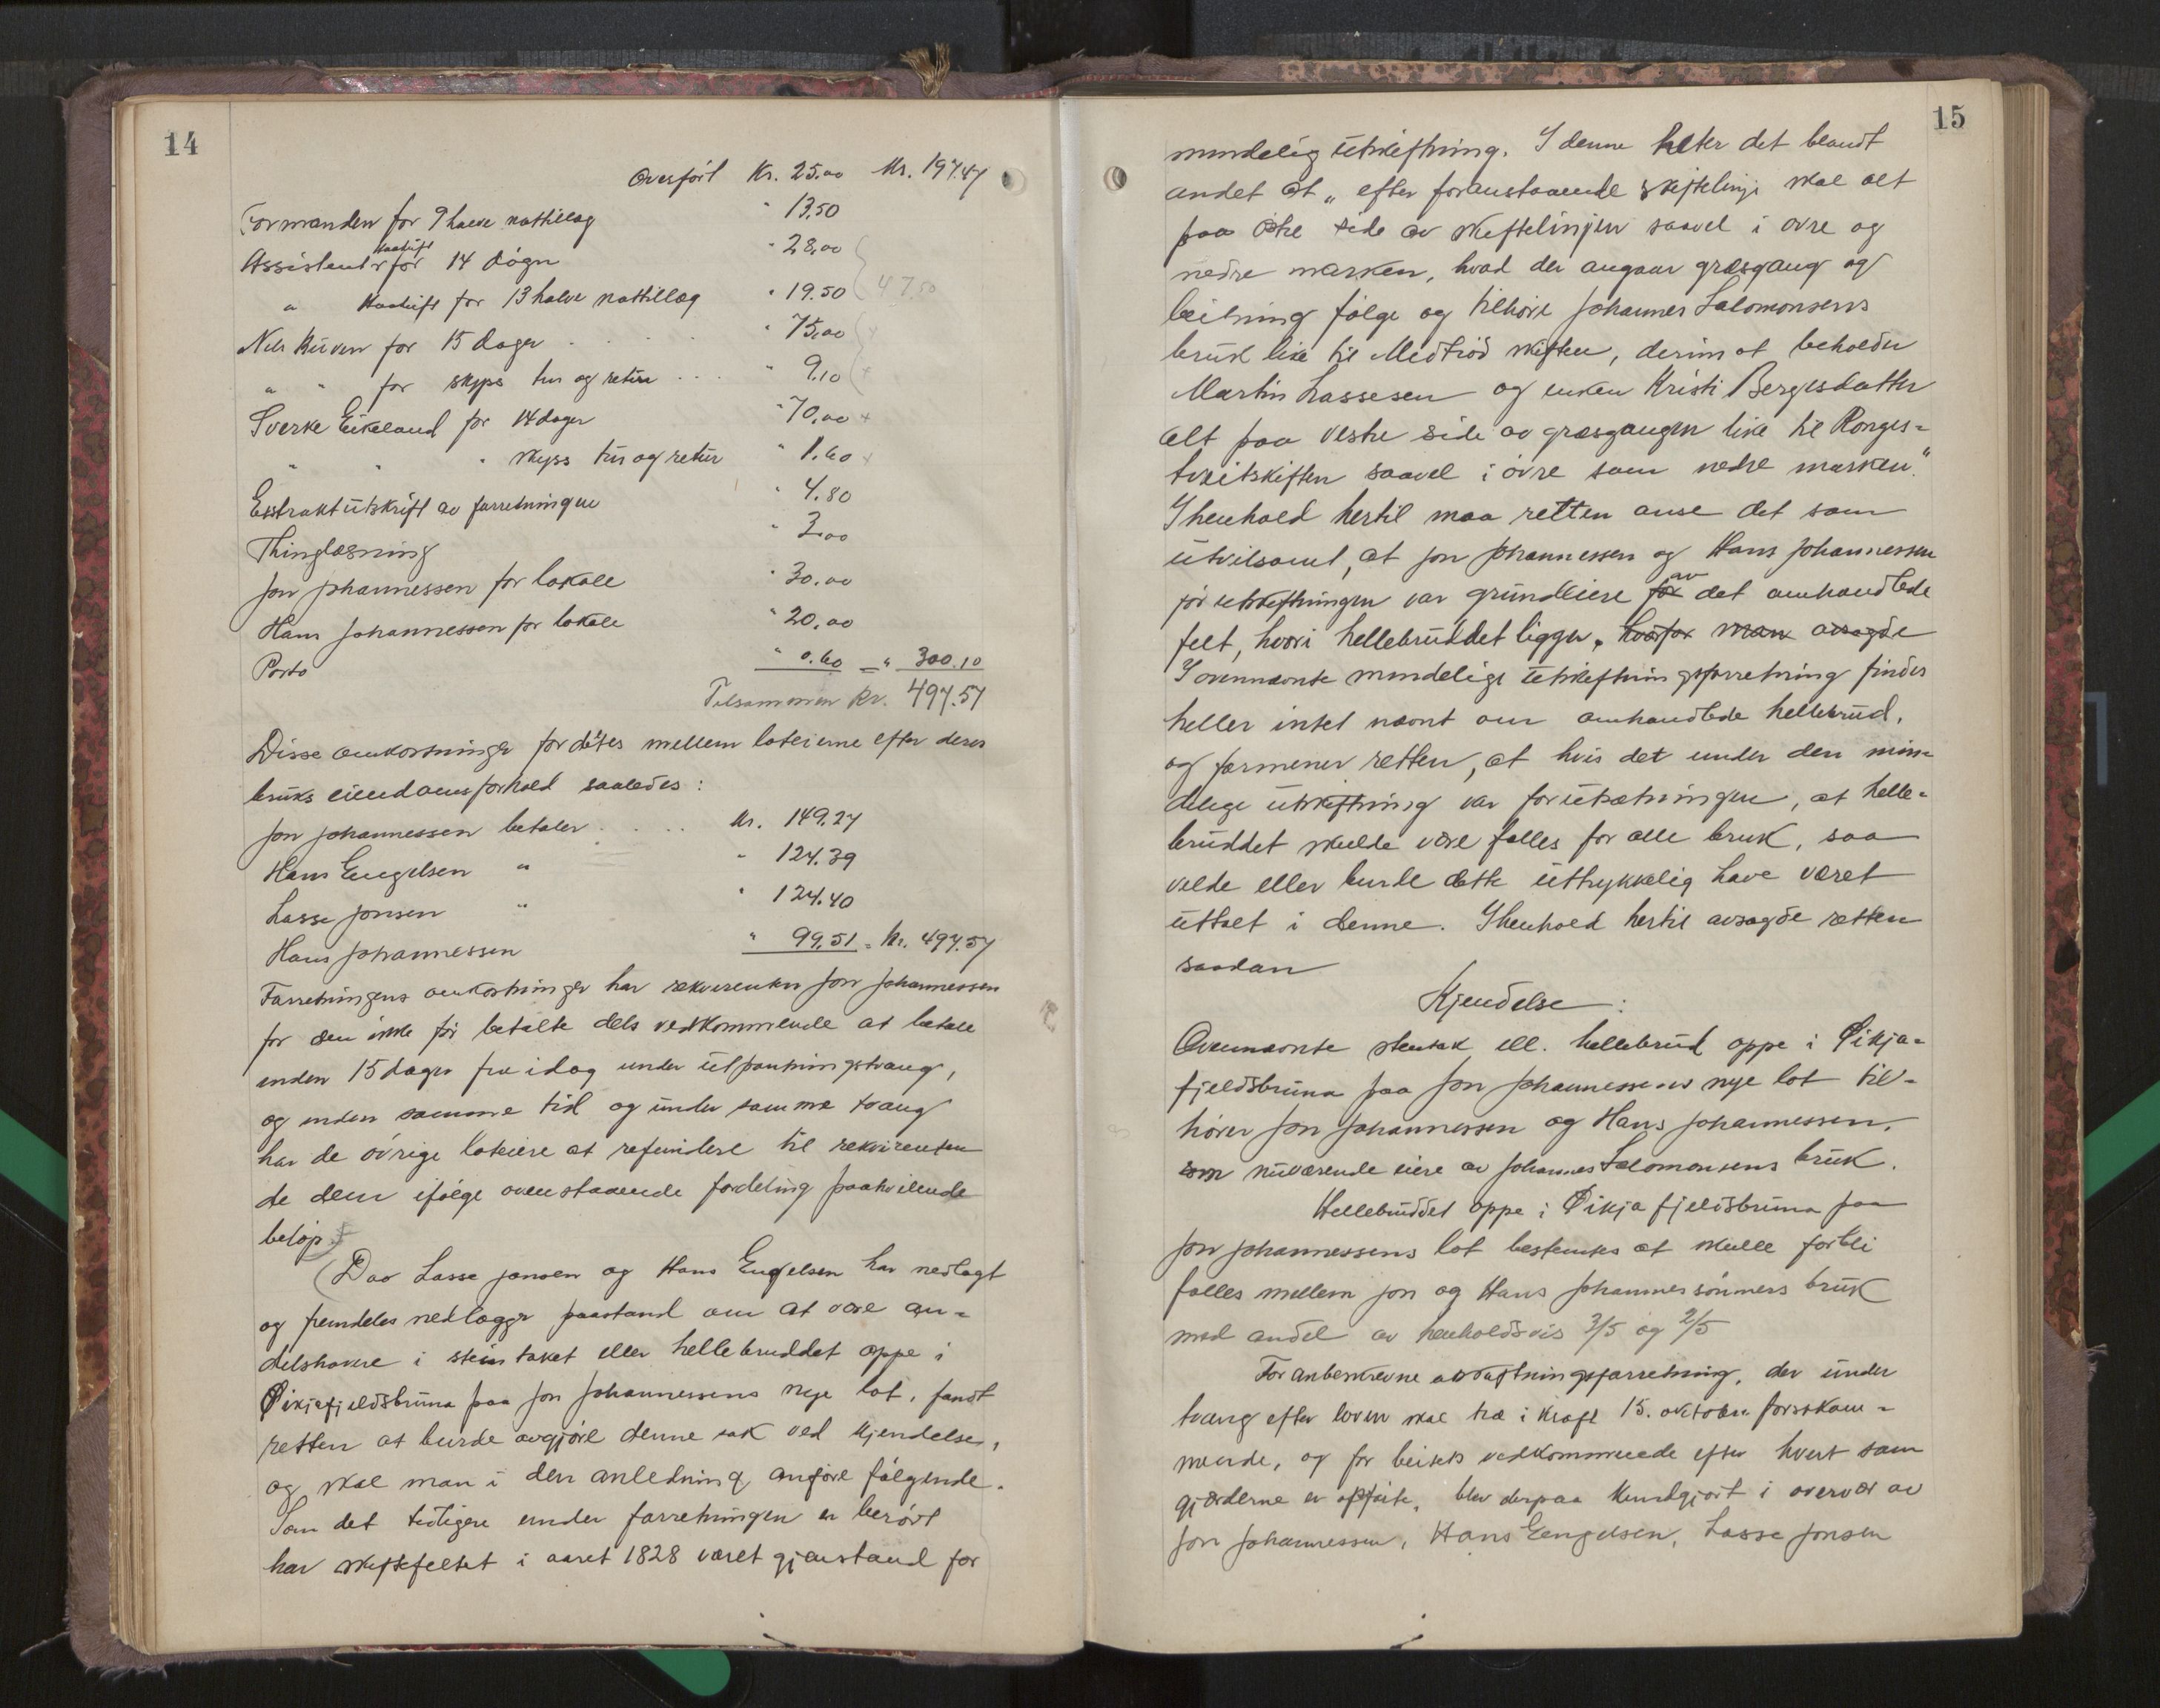 14
Overført Kr. 25.00 Kr. 197.47
Formanden for 9 halve nattillæg " 13.50
Assistent Haadift for 14 døgn " 28.00
" Haadift for 13 halve nattillæg " 19.50 47.50
Nils Kuven for 15 dager . . . . . " 75.00 +
" " for skyss tur og retur . . . " 9.10 +
Sverke Eikeland for 14 dager " 70.00 +
" " " skyss tur og retur " 1.60 +
Esstraktutskrift av forretningen " 4.80
Thinglæsning " 3.00
Jon Johannessen for lokale " 30.00
Hans Johannessen for lokale " 20.00
Porto " 0.60 = " 300.10
Tilsammen Kr. 497.57
Disse omkostninger fordeles mellem loteierne efter deres
bruks eiendomsforhold saaledes:
Jon Johannessen betaler . . . . Kr. 149.27
Hans Engelsen " " 124.39
Lasse Jonsen " " 124.40
Hans Johannessen " 99.51 = Kr. 497.57
Forretningens omkostninger har rekvirenten Jon Johannessen
for den ikke før betalte dels vedkommende at betale
inden 15 dager fra idag under utpantningstvang,
og inden samme tid og under samme tvang
har de øvrige loteiere at refundere til rekvirenten
de dem ifølge ovenstaaende fordeling paahvilende
beløp.
(Da Lasse Jonsen og Hans Engelsen har nedlagt
og fremdeles nedlægger paastand om at være an-
delshavere i steintaket eller hellebruddet oppe i
Øikjafjeldsbruna paa Jon Johannessens nye lot, fandt
retten at burde avgjøre denne sak ved kjendelse,
og skal man i den anledning anføre følgende.
Som det tidligere under forretningen er berørt
har skiftefeltet i aaret 1828 været gjenstand for
15
mindelig utskiftning. I denne heter det blandt
andet at „efter foranstaaende skiftelinje skal alt
paa østre side av skiftelinjen saavel i øvre og
nedre marken, hvad der angaar græsgang og
beitning følge og tilhøre Johannes Salomonsens
bruk like til Medtrød skiftet, derimot beholder
Martin Lassesen og enken Kristi Bergesdatter
alt paa vestre side av græsgangen like til Ronges-
tveitskiften saavel i øvre som nedre marken."
I henhold hertil maa retten anse det som
utvilsomt, at Jon Johannessen og Hans Johannessen
før utskiftningen var grundeiere for av det omhandlede
felt, hvori hellebruddet ligger. hvorfor man avsagde
I ovennævnte mindelige utskiftningsforretning findes
heller intet nævnt om omhandlede hellebrud,
og formener retten, at hvis det under den min-
delige utskiftning var forutsætningen, at helle-
bruddet skulde være fælles for alle bruk, saa
vilde eller burde dette uttrykkelig have været
uttalt i denne. I henhold hertil avsagde retten
saadan
Kjendelse:
Ovennævnte stentak ell. hellebrud oppe i Øikja-
fjeldsbruna paa Jon Johannessens nye lot til-
hører Jon Johannessen og Hans Johannessen,
som nuværende eiere av Johannes Salomonsens bruk.
Hellebruddet oppe i Øikjafjeldsbruna paa
Jon Johannessens lot bestemtes at skulle forbli
fælles mellem Jon og Hans Johannessønners bruk
med andel av henholdsvis 3/5 og 2/5
Foranbeskrevne utskiftningsforretning, der under
tvang efter loven skal træ i kraft 15. oktober førstkom-
mende, og for beitets vedkommende efter hvert som
gjærderne er opførte, blev derpaa kundgjort i overvær av
Jon Johannessen, Hans Engelsen, Lasse Jonsen